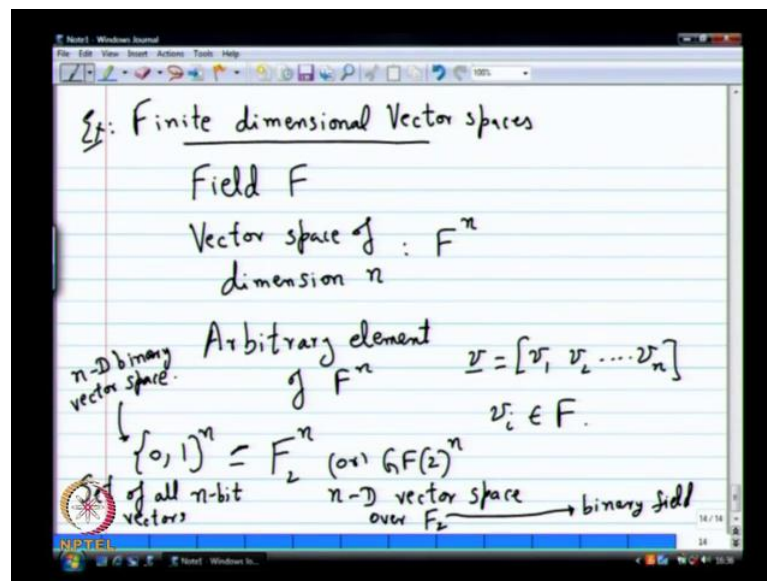 Note1 - Windows Journal
File Edit View Insert Actions Tools Help
100%
Ex: Finite dimensional Vector spaces
Field F
Vector space of : F^n
dimension n
Arbitrary element
of F^n
v = [v_1 v_2 .... v_n]
v_i ∈ F.
n-D binary
vector space.
{0,1}^n = F_2^n (or) GF(2)^n
Set of all n-bit
vectors
n-D vector space
over F_2 → binary field
14 / 14
14
NPTEL
Note1 - Windows Jo...
16:36